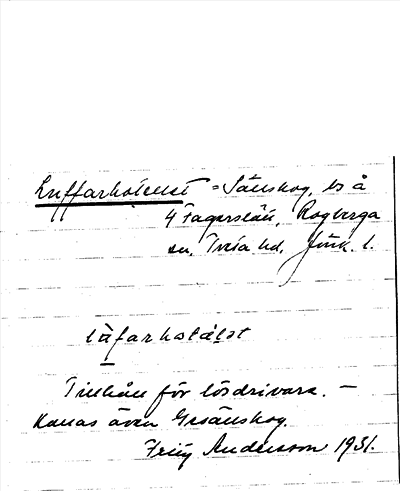 Luffarhotellet = Sänskog, ls å
4 Fagerslätt, Rogberga
sn, Tveta hd, Jönk. l.
lùfarhotälet
Tillhåll för lösdrivare. —
Kallas även Gråänskog.
Andersson 1931.